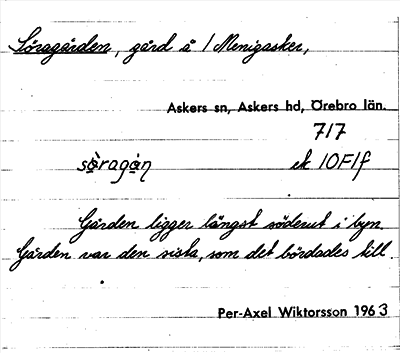 Söragården, gård å 1 Menigasker,
Askers sn, Askers hd, Örebro län.
717
sö̀ragán ek 10F1f
Gården ligger längst söderut i byn.
Gården var den sista, som det bördades till.
Per-Axel Wiktorsson 1963